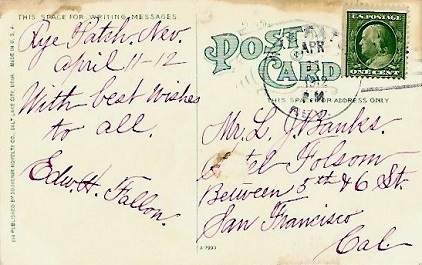 THIS SPACE FOR WRITING MESSAGES
Rye Patch. Nev.
April 11-12
With best Wishes
to all.
Edw. H. Fallon.
POST CARD
THIS SPACE FOR ADDRESS ONLY
APR
U.S. POSTAGE
ONE CENT
Mr. L. J. Banks.
Folsom
Between 5th & 6 St.
San Francisco
Cal.
PUBLISHED BY SOUVENIR NOVELTY CO., SALT LAKE CITY, UTAH.
MADE IN U.S.A.